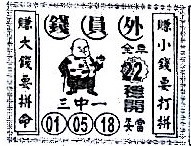 錢員外
賺大錢要拼命
賺小錢要打拼
全車
22
開
三中一
01 05 18